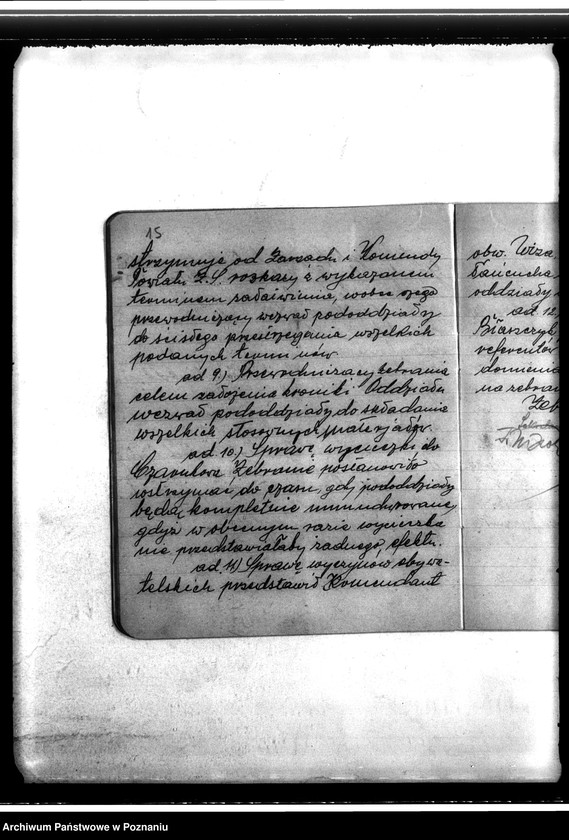 15
otrzymuje od Zarządu i Komendy
Powiatu Z.S. rozkazy z wykazanem
terminem załatwienia, wobec czego
przewodniczący wezwał pododdziały
do ścisłego przestrzegania wszelkich
podanych terminów.
ad 9.) Przewodniczący zebrania
celem założenia kroniki Oddziału
wezwał pododdziały do składania
wszelkich stosownych materjałów.
ad. 10.) Sprawę wycieczki do
Czarnkowa, Zebranie postanowiło
wstrzymać do czasu, gdy pododdziały
będą kompletnie umundurowane,
gdyż w obecnym razie wycieczka
nie przedstawiałaby żadnego efektu.
ad. 11) Sprawę wyczynów obywa-
telskich przedstawił Komendant
obw. Wiza
Łańcucha
oddziały
ad 12
Błaszczyk
referentów
domienia
na zebran
Zeb
Archiwum Państwowe w Poznaniu